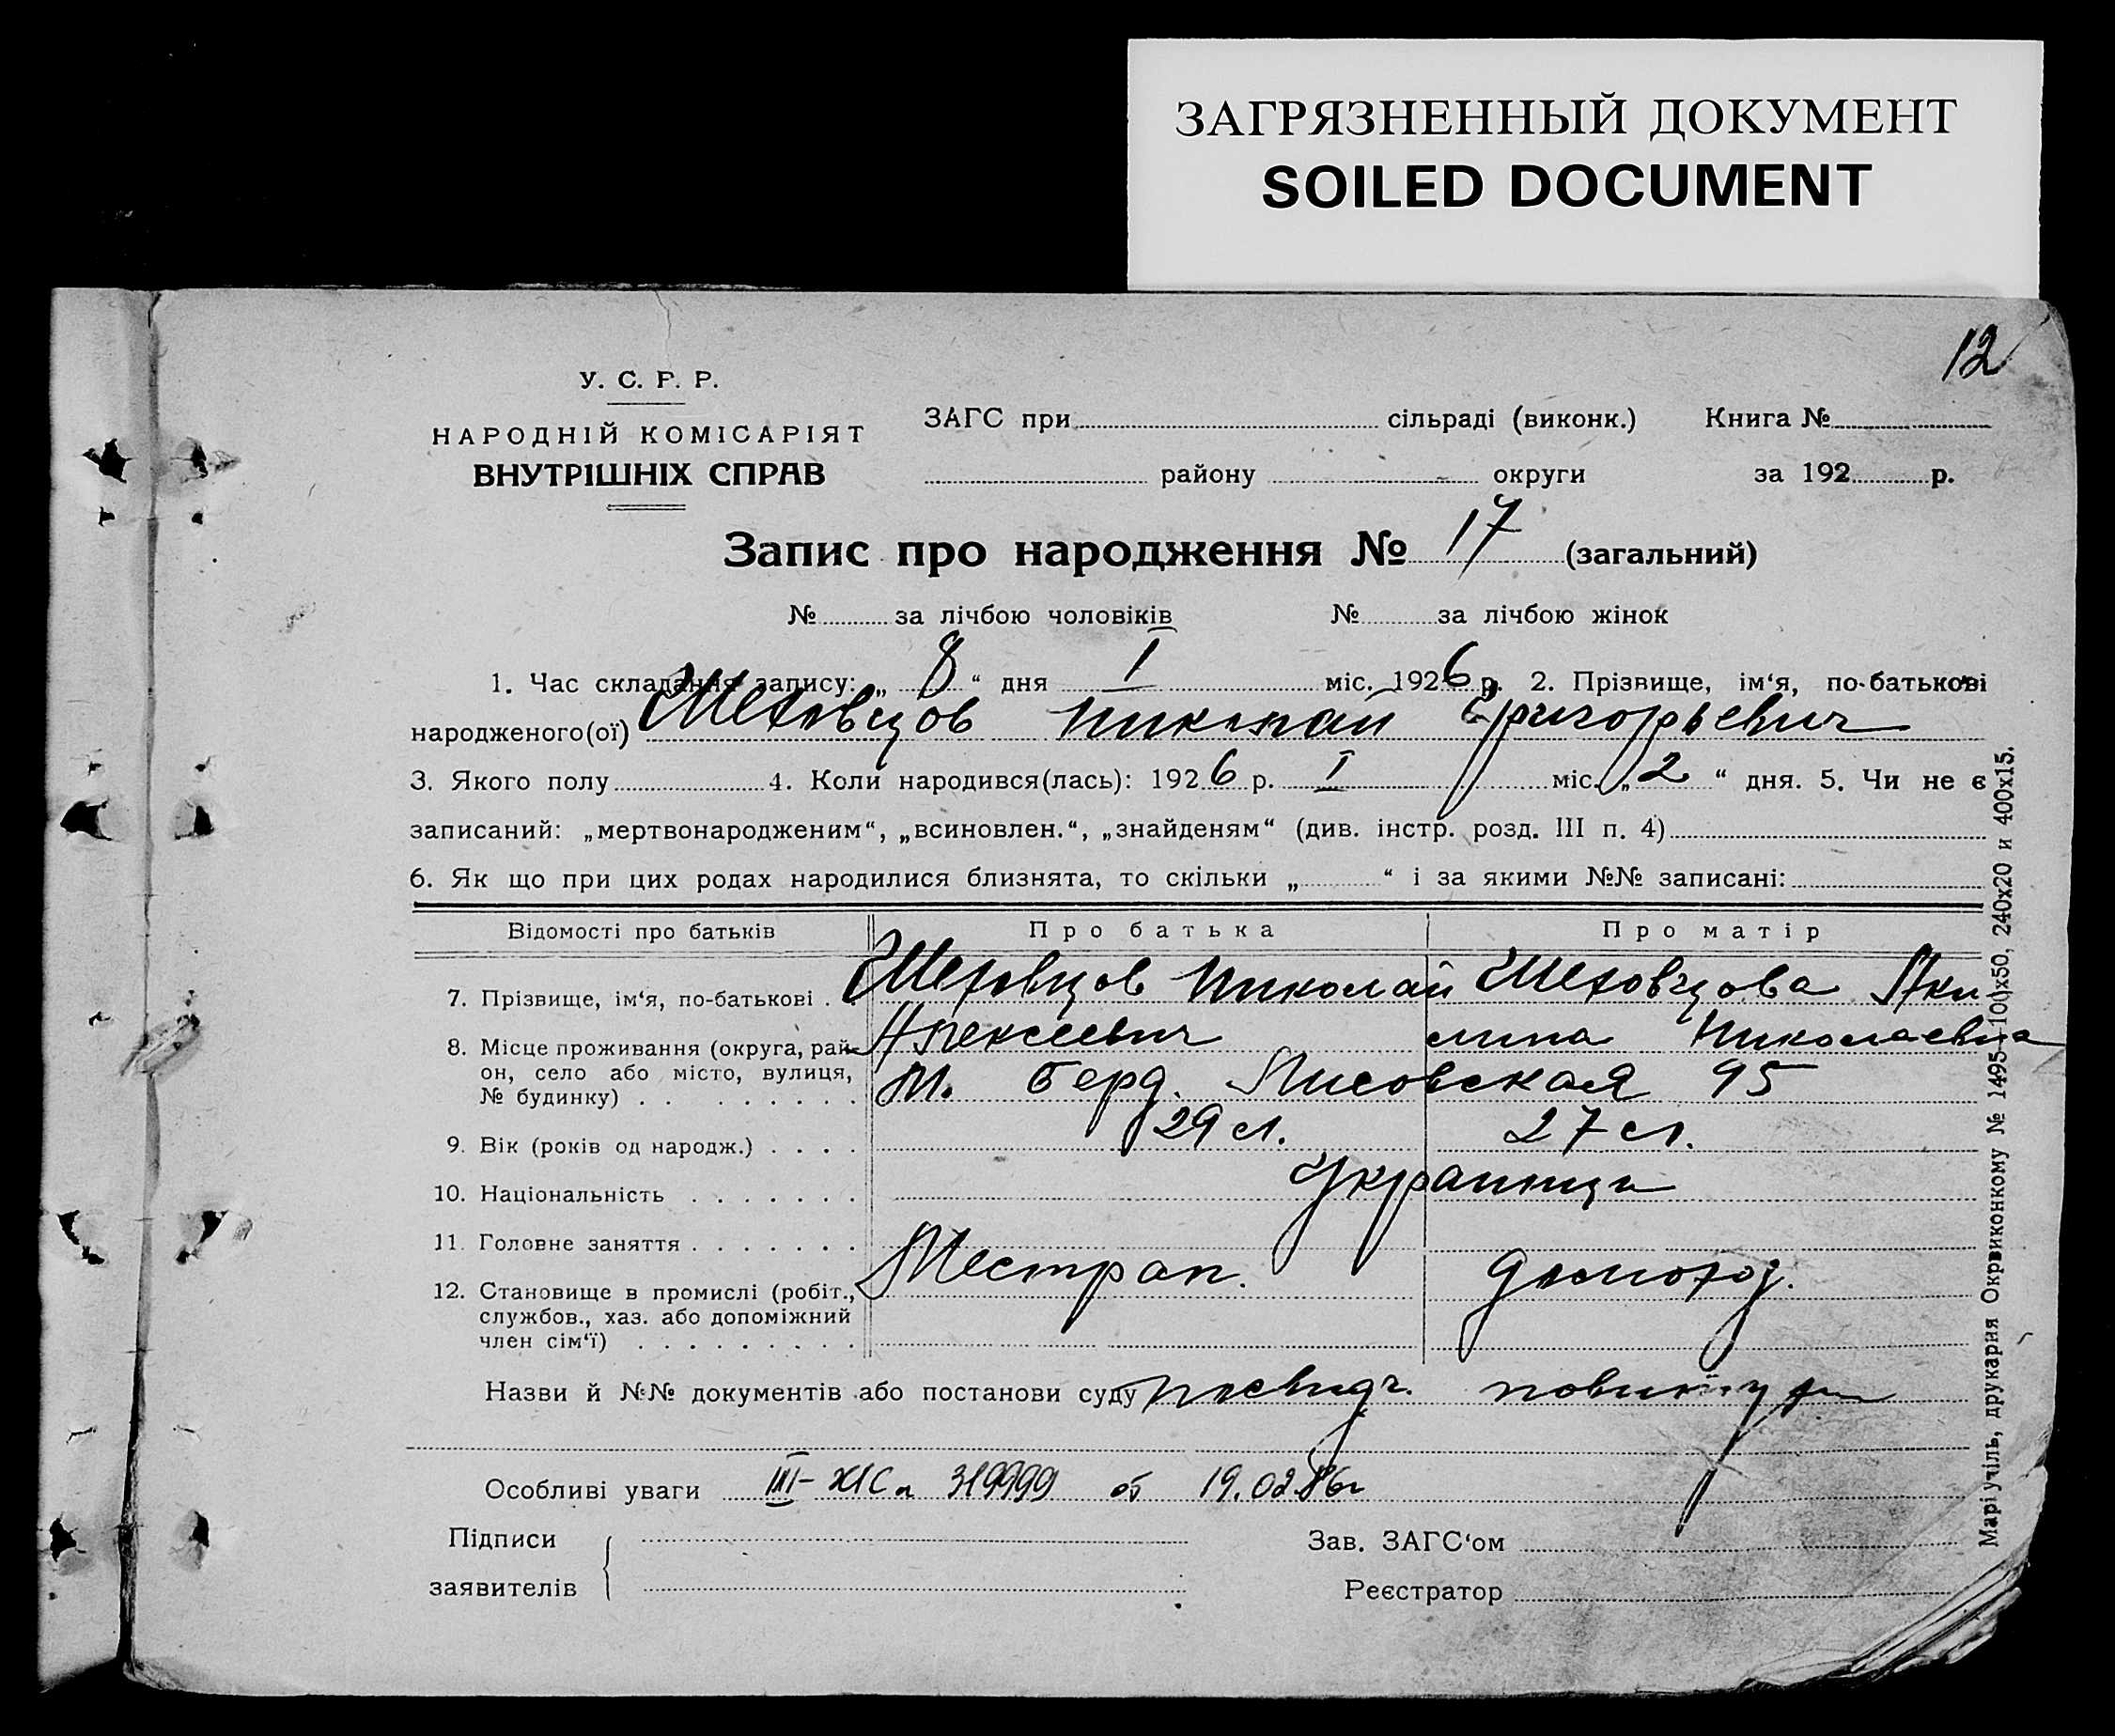 ЗАГРЯЗНЕННЫЙ ДОКУМЕНТ
SOILED DOCUMENT
12
У. С. Р. Р.
НАРОДНІЙ КОМІСАРІЯТ
ВНУТРІШНІХ СПРАВ
ЗАГС при сільраді (виконк.) Книга №
району округи за 192 р.
Запис про народження № 17 (загальний)
№ за лічбою чоловіків № за лічбою жінок
1. Час складання запису: „ 8 “ дня I міс. 1926 р. 2. Прізвище, ім‘я, по-батькові
народженого(ої) Шеховцов Николай Григорьевич
3. Якого полу 4. Коли народився(лась): 1926 р. I міс. „ 2 “ дня. 5. Чи не є
записаний: „мертвонародженим“, „всиновлен.“, „знайденям“ (див. інстр. розд. III п. 4)
6. Як що при цих родах народилися близнята, то скільки „ “ і за якими №№ записані:
Відомості про батьків Про батька Про матір
7. Прізвище, ім‘я, по-батькові . Шеховцов Николай Шеховцова Аки
Алексеевич лина Николаевна
8. Місце проживання (округа, рай-
он, село або місто, вулиця,
№ будинку) . . . . . . . . . . м. Берд. Лисовская 95
9. Вік (років од народж.) . . . . 29 л. 27 л.
10. Національність . . . . . . . Украинци
11. Головне заняття . . . . . . . Жестран. домохоз.
12. Становище в промислі (робіт.,
службов., хаз. або допоміжний
член сім‘ї) . . . . . . . . . .
Назви й №№ документів або постанови суду посвидч.
Особливі уваги III- 319999 от 19.02.86г
Підписи
заявителів
Зав. ЗАГС‘ом
Реєстратор
Маріупіль, друкарня Окрвиконкому № 1495-100х50, 240х20 и 400х15.